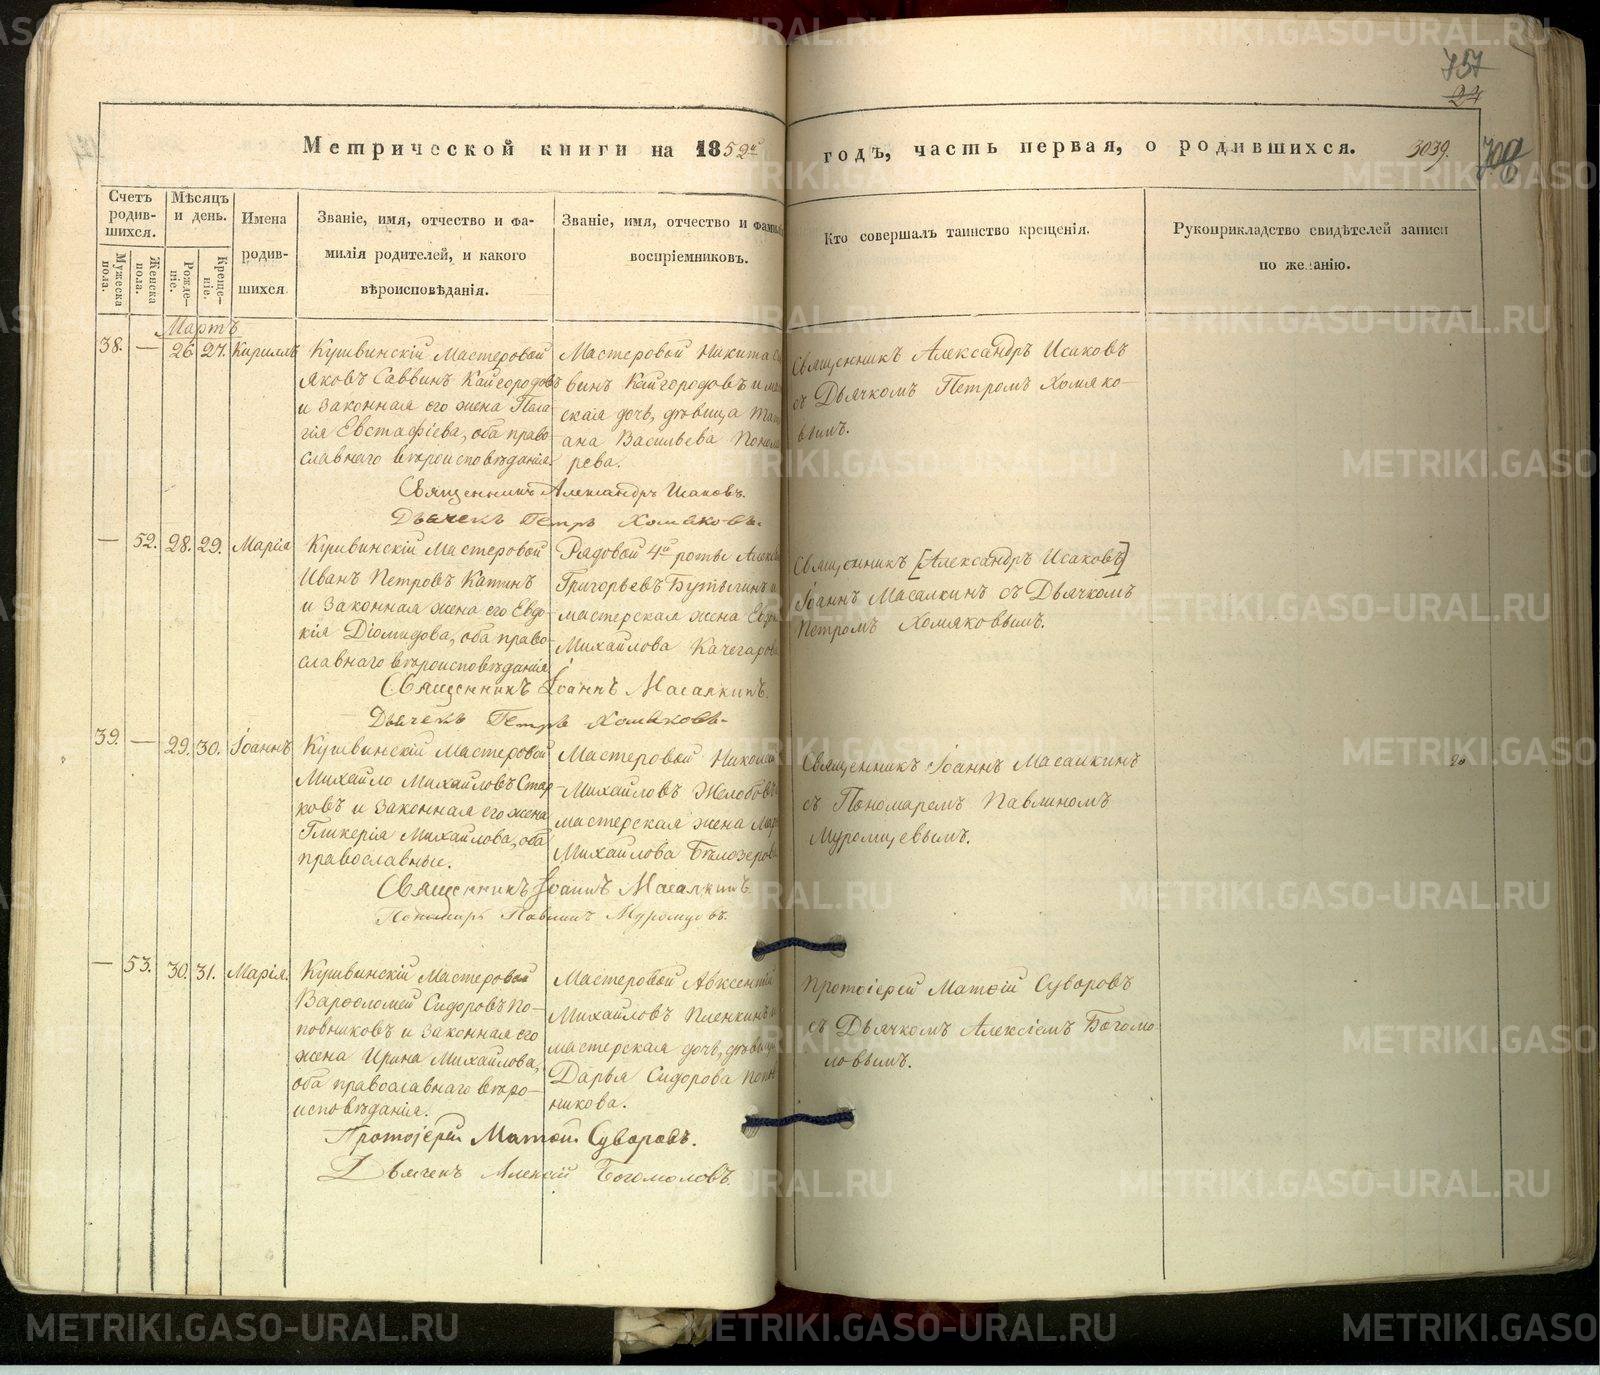 757
24
Метрической книги на 1852й годъ, часть первая, о родившихся. 3039.
Счетъ родившихся.
Мѣсяцъ и день.
Имена родившихся
Званіе, имя, отчество и фамилія родителей, и какого вѣроисповѣданія.
Званіе, имя, отчество и фамилі воспріемниковъ.
Кто совершалъ таинство крещенія.
Рукоприкладство свидѣтелей записи по желанію.
Мужеска пола.
Женска пола.
Рожденіе.
Крещеніе.
Мартъ
38. — 26 27. Кириллъ
Кушвинскій Мастеровой
Яковъ Саввинъ Кайгородовъ
и законная его жена Пела-
гія Евстафіева, оба право-
славнаго вѣроисповѣданія.
Мастеровой Никита Са
винъ Кайгородовъ и ма
ская дочь, дѣвица Тать
ана Васильева Понома
рева.
Священникъ Александръ Исаковъ
съ Дьячкомъ Петромъ Хомяко-
вымъ.
Священникъ Александръ Исаковъ.
Дьячекъ Петръ Хомяковъ.
— 52. 28. 29. Марія
Кушвинскій Мастеровой
Иванъ Петровъ Катинъ
и законная жена его Евдо-
кія Діомидова, оба право-
славнаго вѣроисповѣданія
Рядовой 4й роты Алекс
Григорьевъ Бутыгинъ и
мастерская жена Евдо
Михайлова Качегарова
Священникъ [Александръ Исаковъ]
Іоаннъ Масалкинъ съ Дьячкомъ
Петромъ Хомяковымъ.
Священникъ Іоаннъ Масалкинъ.
Дьячекъ Петръ Хомяковъ.
39. — 29. 30. Іоаннъ
Кушвинскій Мастеровой
Михайло Михайловъ Стар-
ковъ и законная его жена
Гликерія Михайлова, оба
православные.
Мастеровой Николай
Михайловъ Желобовъ
мастерская жена Мар
Михайлова Бѣлозерова
Священникъ Іоаннъ Масалкинъ
съ Пономаремъ Павлиномъ
Муромцевымъ.
Священникъ Іоаннъ Масалкинъ
Пономарь Павлинъ Муромцовъ.
— 53. 30. 31. Марія.
Кушвинскій Мастеровой
Варѳоломей Сидоровъ По-
повниковъ и законная его
жена Ирина Михайлова,
оба православнаго вѣро-
исповѣданія.
Мастеровой Авксентій
Михайловъ Пленкинъ и
мастерская дочь, дѣвица
Дарья Сидорова Попов
никова.
Протоіерей Матѳій Суворовъ
съ Дьячкомъ Алексіемъ Богомо-
ловымъ.
Протоіерей Матѳій Суворовъ.
Дьячекъ Алексій Богомоловъ.
METRIKI.GASO-URAL.RU